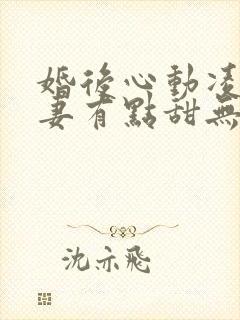 婚後心動凌
妻有點甜無
沈亦飛